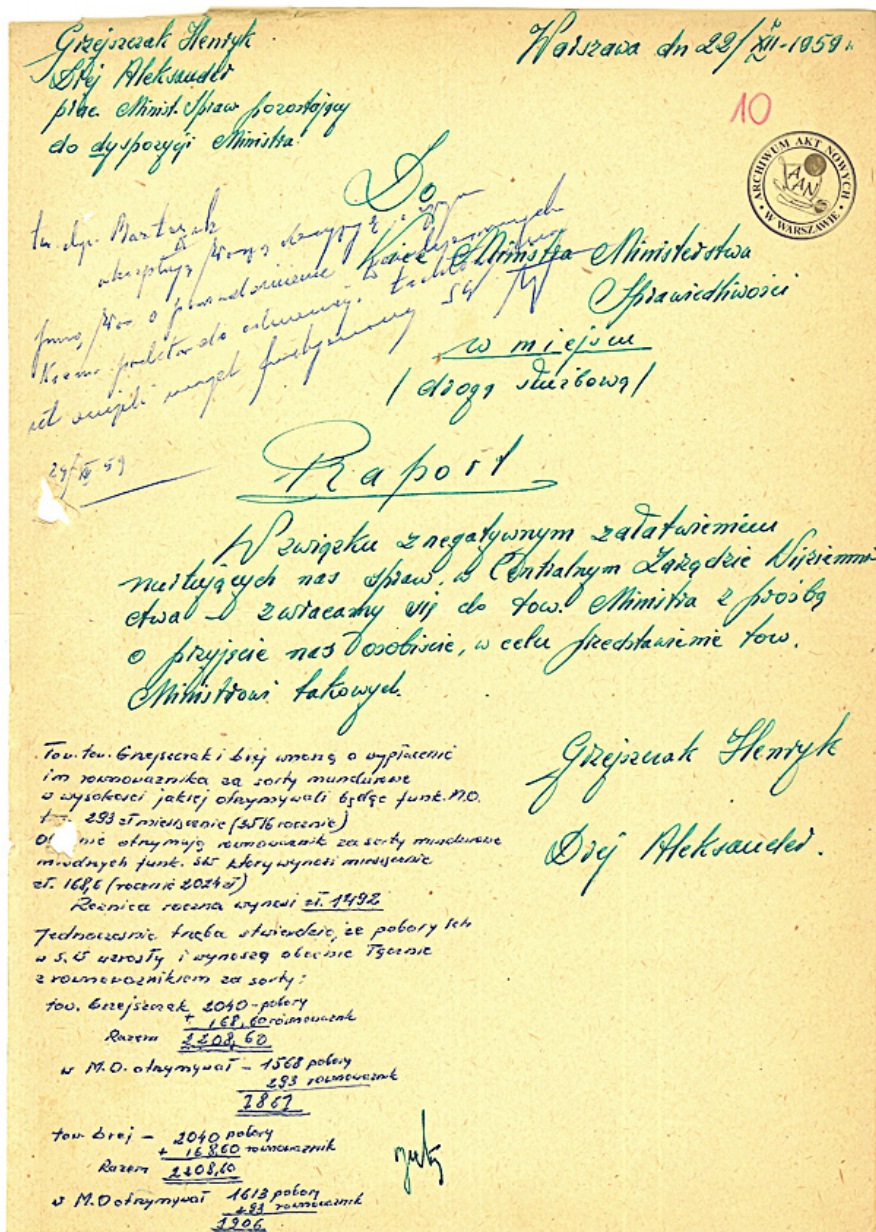 Grzejszczak Henryk
Drej Aleksander
prac. Minist. Spraw pozostający
do dyspozycji Ministra
Warszawa dn 22/XII-1959 r
10
ARCHIWUM AKT NOWYCH
W WARSZAWIE
AAN
Do
Vice Ministra Ministerstwa
Sprawiedliwości
w miejscu
/ drogą służbową /
tow. dyr.
24/XII 59
Raport
W związku z negatywnym załatwieniem
nurtujących nas spraw, w Centralnym Zarządzie Więzienni
ctwa – zwracamy się do tow. Ministra z prośbą
o przyjęcie nas osobiście, w celu przedstawienie tow.
Ministrowi takowych.
Grzejszczak Henryk
Drej Aleksander.
Tow. tow. Grzejszczak i Drej wnoszą o wypłacenie
im równoważnika za sorty mundurowe
w wysokości jakiej otrzymywali będąc funk. M.O.
293 zł miesięcznie (3516 rocznie)
otrzymują równoważnik za sorty mundurowe
młodszych funk. SW który wynosi miesięcznie
zł. 168,6 (rocznie 2024 zł)
Różnica roczna wynosi zł. 1492
Jednocześnie trzeba stwierdzić, że pobory ich
w S.W wzrosły i wynoszą obecnie łącznie
z równoważnikiem za sorty:
tow. Grzejszczak 2040 - pobory
+ 168,60 równoważnik
Razem 2208,60
w M.O. otrzymywał – 1568 pobory
293 równoważnik
1861
tow. Drej – 2040 pobory
+ 168,60 równoważnik
Razem 2208,60
w M.O otrzymywał 1613 pobory
293 równoważnik
1906